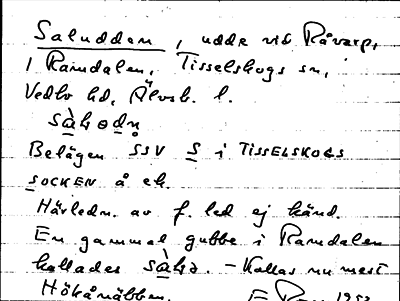 Saluddan, udde vid Råvarp,
i Ramdalen, Tisselskogs sn,
Vedbo hd, Älvsb. l.
Belägen SSV S i TISSELSKOGS
SOCKEN å ek.
Härledn. av f. led ej känd.
En gammal gubbe i Ramdalen
kallades – Kallas nu mest
Hökånäbben.